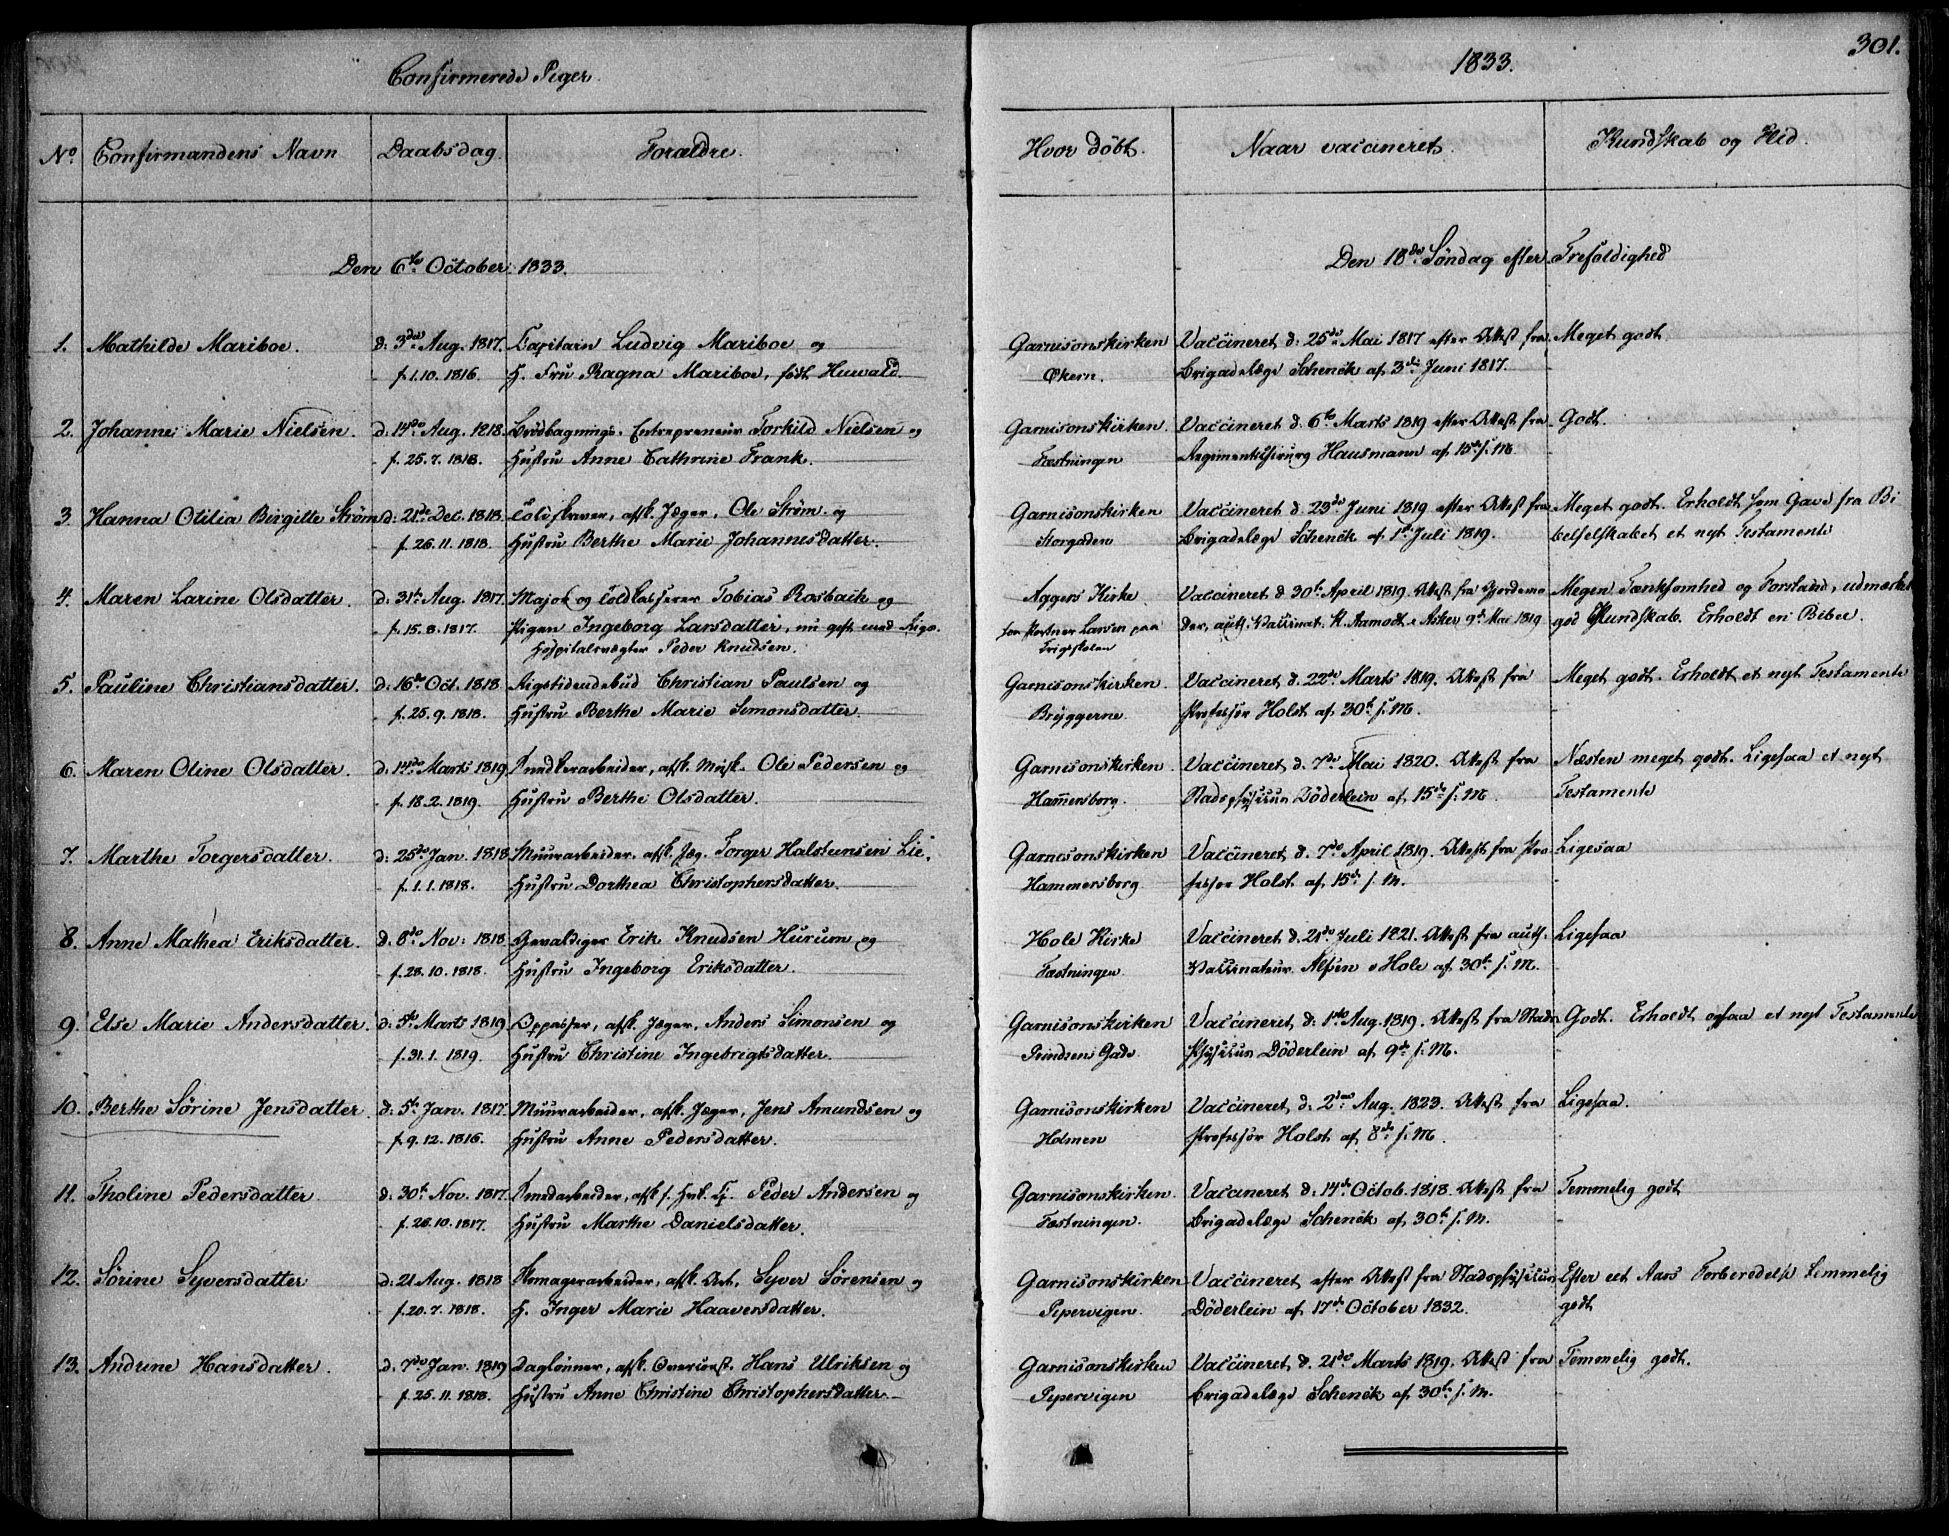 301.
Confirmerede Piger.
1833.
No. Confirmandens Navn Daabsdag. Forældre. Hvor døbt. Naar vaccineret. Kundskab og Flid.
Den 6te October 1833. Den 18de Søndag efter Trefoldighed
1. Mathilde Mariboe. d. 3die Aug. 1817. Capitain Ludvig Mariboe og Garnisonskirken Vaccineret d. 25de Mai 1817 efter Attest fra Meget godt
f. 1.10.1816. H. Fru Ragna Mariboe, født Huwald. Økern. Brigadelæge Schenck af 3die Juni 1817.
2. Johanne Marie Nielsen. d. 14de Aug. 1818. Brødbagnings-Entrepreneur Torkild Nielsen og Garnisonskirken. Vaccineret d. 6te Marts 1819 efter Attest fra Godt.
f. 25.7.1818. Hustru Anne Cathrine Frank. Fæstningen Regimentschirurg Hausmann af 15de s. M.
3. Hanna Otilia Birgitte Strøm d. 21de Dec. 1818. afsk. Jæger, Ole Strøm og Garnisonskirken Vaccineret d. 23de Juni 1819 efter Attest fra Meget godt. Erholdt som Gave fra Bi
f. 26.11.1818. Hustru Berthe Marie Johannesdatter. Storgaden Brigadelæge Schenck af 1ste Juli 1819. belselskabet et nyt Testamente
4. Maren Larine Olsdatter. d. 31te Aug. 1817. Major og Toldkasserer Tobias Rosbach og Aggers Kirke Vaccineret d. 30te April 1819. Attest fra Gjordemo Megen Tænksomhed og Forstand, udmærket
f. 15.8.1817. Pigen Ingeborg Larsdatter, nu gift med Rigs- hos Portner Larsen paa der, auth. Vaccinat. K. Aamodt i Asker 9de Mai 1819 god Kundskab. Erholdt en Bibel.
Hospitalsvægter Peder Knudsen. Frigskolen
5. Pauline Christiansdatter. d. 16de Oct. 1818 Rigstidendebud Christian Paulsen og Garnisonskirken. Vaccineret d. 22de Marts 1819. Attest fra Meget godt. Erholdt et nyt Testamente
f. 25.9.1818. Hustru Berthe Marie Simonsdatter. Bryggerne Professor Holst af 30te s. M.
6. Maren Oline Olsdatter. d. 14de Marts 1819 afsk. Musk. Ole Pedersen og Garnisonskirken. Vaccineret d. 7de Mai 1820. Attest fra Næsten meget godt. Ligesaa et nyt
f. 18.2.1819. Hustru Berthe Olsdatter. Hammersborg. Stadsphysicus Döderlein af 15de s. M. Testamente
7. Marthe Torgersdatter. d. 25de Jan. 1818 Muurarbeider, afsk. Jæg. Torger Halstensen Lie. Garnisonskirken Vaccineret d. 7de April 1819. Attest fra Pro Ligesaa
f. 1.1.1818. Hustru Dorthea Christophersdatter. Hammersborg fessor Holst af 15de s. M.
8. Anne Mathea Eriksdatter. d. 8de Nov. 1818 Gevaldiger Erik Knudsen Hurum og Hole Kirke Vaccineret d. 21de Juli 1821. Attest fra auth. Ligesaa
f. 28.10.1818. Hustru Ingeborg Eriksdatter. Fæstningen Vaccinateur Alsen i Hole af 30te s. M.
9. Else Marie Andersdatter. d. 5te Marts 1819 Oppasser, afsk. Jæger, Anders Simonsen og Garnisonskirken Vaccineret d. 1ste Aug. 1819. Attest fra Stads Godt. Erholdt ogsaa et nyt Testamente
f. 31.1.1819. Hustru Christine Ingebrigtsdatter. Prindsens Gade Physicus Döderlein af 9de s. M.
10. Berthe Sørine Jensdatter. d. 5te Jan. 1817. Muurarbeider, afsk. Jæger, Jens Amundsen og Garnisonskirken Vaccineret d. 2den Aug. 1823. Attest fra Ligesaa.
f. 9.12.1816. Hustru Anne Pedersdatter. Holmen Professor Holst af 8de s. M.
11. Tholine Pedersdatter d. 30te Nov. 1817. Peder Andersen og Garnisonskirken. Vaccineret d. 14de Octob. 1818. Attest fra Temmelig godt
f. 26.10.1817. Hustru Marthe Danielsdatter. Fæstningen. Brigadelæge Schenck af 30te s. M.
12. Sørine Syversdatter d. 21 Aug. 1818 afsk. Art. Syver Sørensen og Garnisonskirken Vaccineret efter Attest fra Stadsphysicus Efter eet Aars Forberedelse temmelig
f. 20.7.1818. H. Inger Marie Haaversdatter. Pipervigen. Döderlein af 17de October 1832. godt
13. Andrine Hansdatter. d. 7de Jan. 1819 Daglønner, afsk. Hans Ulriksen og Garnisonskirken Vaccineret d. 21de Marts 1819. Attest fra Temmelig godt.
f. 25.11.1818. Hustru Anne Christine Christophersdatter Pipervigen Brigadelæge Schenck af 30te s. M.